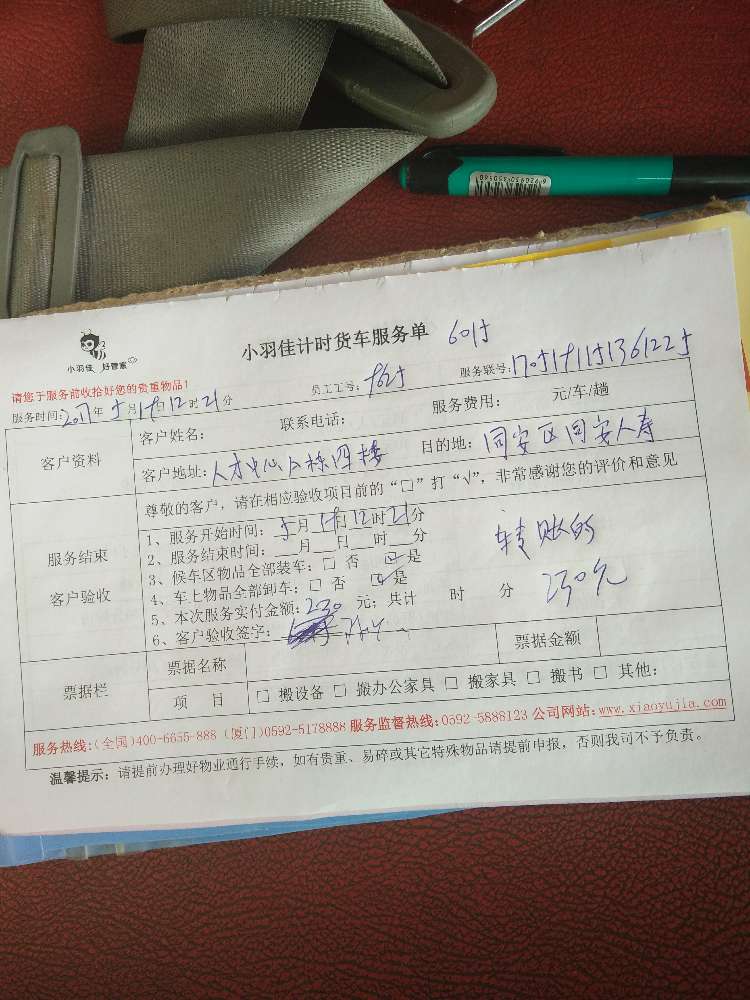 6920950350568
小羽佳 好管家
小羽佳计时货车服务单 6015
请您于服务前收拾好您的贵重物品!
服务时间:2017年5月19日12时21分 员工工号: 服务联号:
客户资料
客户姓名: 联系电话: 服务费用: 元/车/趟
客户地址:人才中心 栋四楼 目的地:同安区同安人寿
服务结束
客户验收
尊敬的客户,请在相应验收项目前的“□”打“√”,非常感谢您的评价和意见
1、服务开始时间:5月19日12时21分
2、服务结束时间:__月__日__时__分
3、候车区物品全部装车:□ 否 ☑是
4、车上物品全部卸车:□ 否 ☑是
5、本次服务实付金额:230 元;共计 时 分
6、客户验收签字:
转账的
230元
票据栏
票据名称 票据金额
项 目 □ 搬设备 □ 搬办公家具 □ 搬家具 □ 搬书 □ 其他:
服务热线:(全国)400-6655-888 (厦门)0592-5178888 服务监督热线:0592-5886123 公司网站:www.xiaoyujia.com
温馨提示:请提前办理好物业通行手续,如有贵重、易碎或其它特殊物品请提前申报,否则我司不予负责。